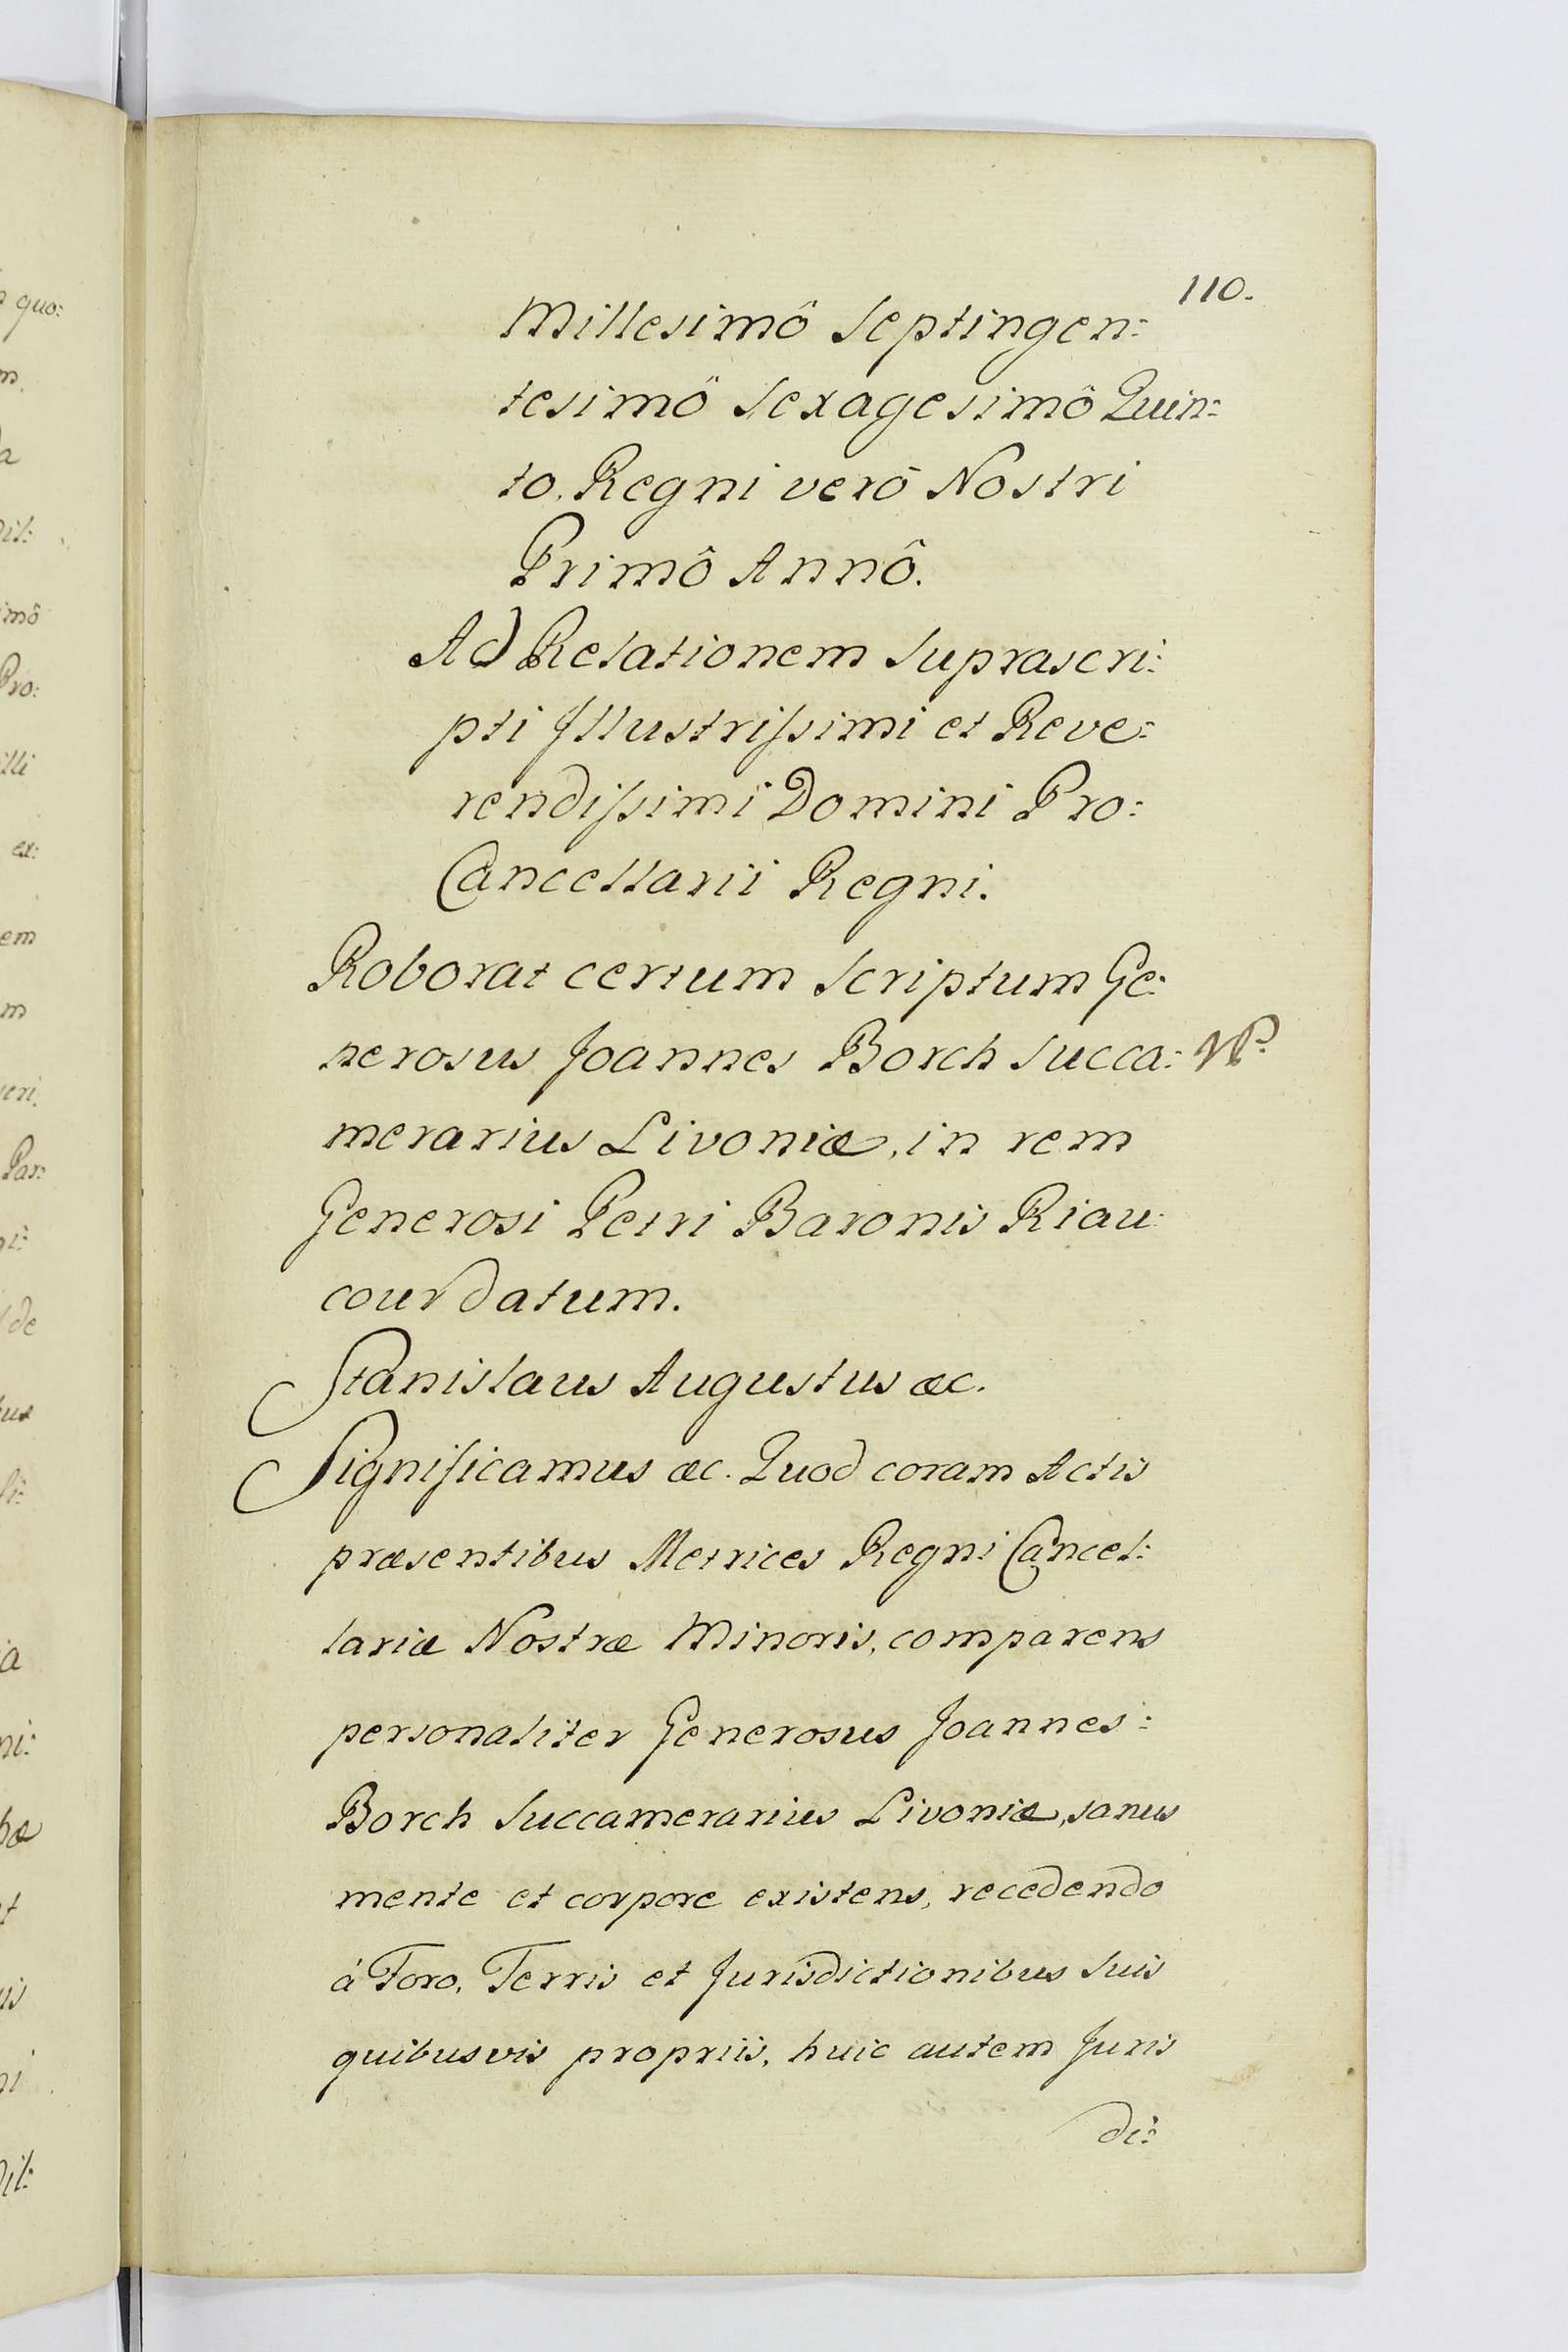 110.
Millesimô Septingen:
tesimô Sexagesimô Quin:
to. Regni verò Nostri
Primô Annô.
Ad Relationem Suprascri:
pti Illustrissimi et Reve:
rendissimi Domini Pro:
Cancellarii Regni.
Roborat certum Scriptum Ge:
nerosus Joannes Borch Succa:
merarius Livoniæ, in rem
Generosi Petri Baronis Riau:
cour datum.
Stanislaus Augustus &c.
Significamus &c. Quod coram Actis
præsentibus Metrices Regni Cancel:
lariæ Nostræ Minoris, comparens
personaliter Generosus Joannes:
Borch Succamerarius Livoniæ, sanus
mente et corpore existens, recedendo
à Foro, Terris et Jurisdictionibus Suis
quibusvis propriis, huic autem Juris
di:
quo:
m
a
dit:
imô
Pro:
illi
ex:
em
m
Par:
de
li:
ia
ni:
t
dit: